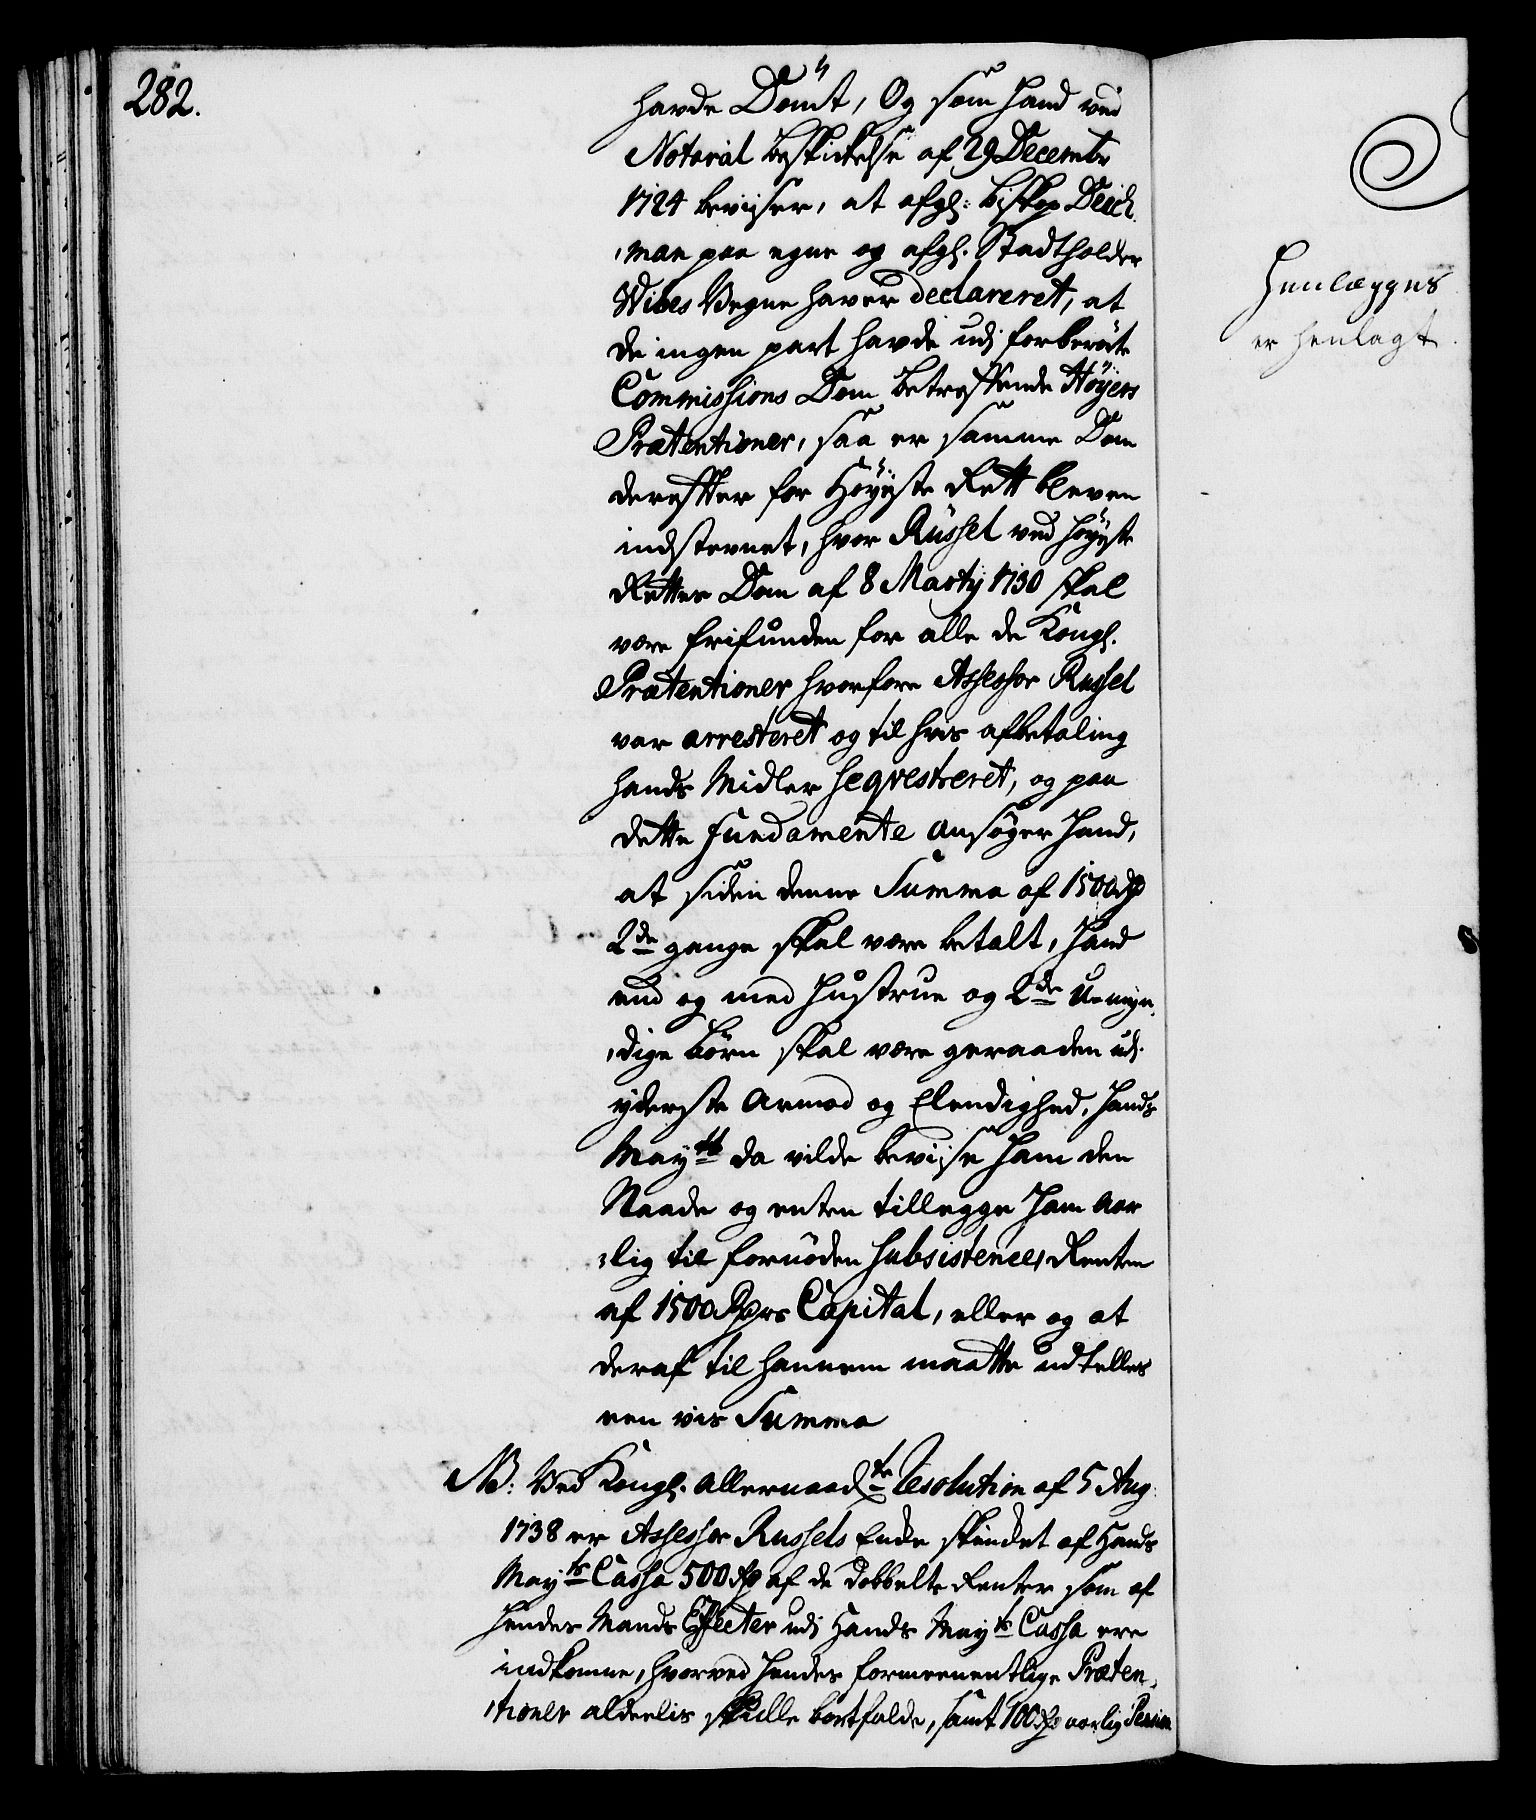 282.
havde Dömt, Og som hand ved
Notarial beskickelse af 29 Decembr
1724 beviiser, at afg: biskop Deich
,man paa egne og afg. Stadtholder
Wibes Vegne haver declareret, at
de ingen part havde udj forberörte
Commissions Dom betreffende Höyers
Prætentioner, saa er samme Dom
derefter for Höyeste Rett bleven
indstevnet, hvor Russel ved höyeste
Rettes Dom af 8 Martij 1730 skal
være frifunden for alle de Kongl.
Prætentioner hvorfore Assessor Russel
var arresteret og til hvis afbetaling
hands Midler seqvestreret, og paa
dette Fundamente ansöger Hand,
at siden denne Summa af 1500 Rd
2de gange skal være betalt, Hand
end og med Hustrue og 2de U-myn,
,dige börn skal være geraaden udj
yderste Armod og Elendighed, Hands
Mayts da vilde beviise Ham den
Naade og enten tillegge Ham Aar
:lig til fornöden Subsistence, Renten
af 1500 Rdrs Capital, eller og at
deraf til hannem maatte udtelles
een vis Summa
NB: Ved Kongl. Allernaadte Resolution af 5 Aug:
1738 er Assessor Russels Enke skienket af Hands
Mayts Cassa 500 Rd af de dobbelte Renter som af
Hendes Mands Effecter udj Hands Mayts Cassa ere
indkomne, hvorved Hendes formeenentlige Præten,
,tioner aldeelis skulle bortfalde, samt 100 Rd aarlig Pension
Henlægges
er henlagt.